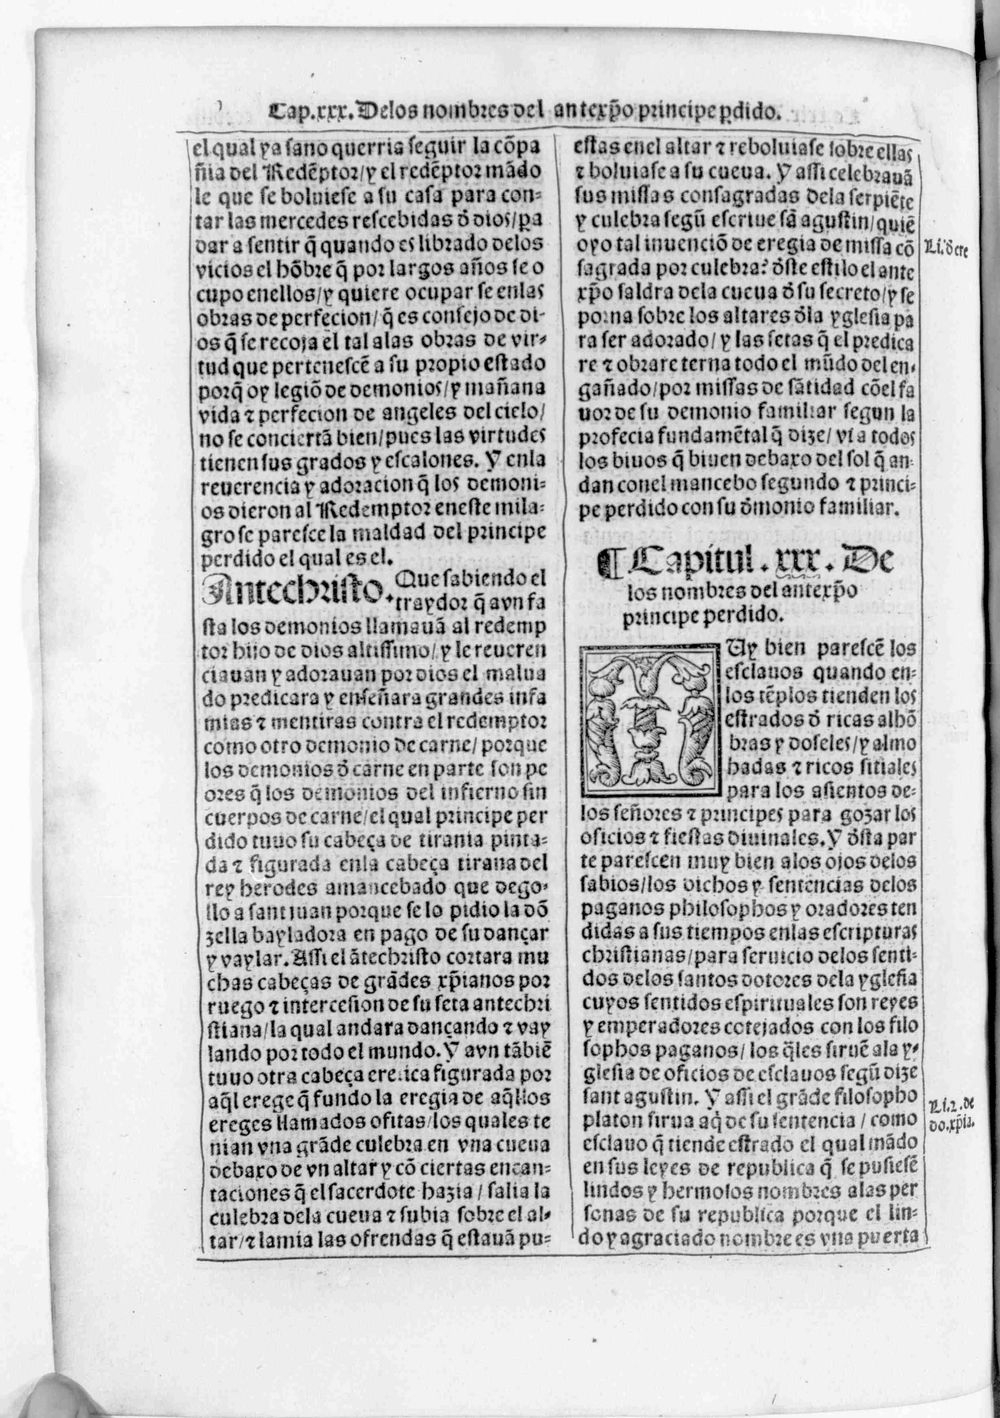 Cap.xxx.Delos nombres del antexp̄o principe ꝑdido.
el qual ya sano querria seguir la cõpa
ñia del Redẽptor/y el redẽptor mãdo
le que se boluiese a su casa para con-
tar las mercedes rescebidas ð dios/pa
dar a sentir q̃ quando es librado delos
vicios el hõbre q̃ por largos años se o
cupo enellos/y quiere ocupar se enlas
obras de perfecion/q̃ es consejo de di-
os q̃ se recoja el tal alas obras de vir-
tud que pertenescẽ a su propio estado
porq̃ oy legiõ de demonios/y mañana
vida ⁊ perfecion de angeles del cielo/
no se conciertã bien/pues las virtudes
tienen sus grados y escalones. Y enla
reuerencia y adoracion q̃ los demoni-
os dieron al Redemptor eneste mila-
gro se paresce la maldad del principe
perdido el qual es el.
Antechristo. Que sabiendo el
traydor q̃ avn fa
sta los demonios llamauã al redemp
tor hijo de dios altissimo/y le reueren
ciauan y adorauan por dios el malua
do predicara y enseñara grandes infa
mias ⁊ mentiras contra el redemptor
como otro demonio de carne/porque
los demonios ð carne en parte son pe
ores q̃ los demonios del infierno sin
cuerpos de carne/el qual principe per
dido tuuo su cabeça de tirania pinta-
da ⁊ figurada enla cabeça tirana del
rey herodes amancebado que dego-
llo a sant juan porque se lo pidio la dõ
zella bayladora en pago de su dançar
y vaylar. Assi el ãtechristo cortara mu
chas cabeças de grãdes xp̄ianos por
ruego ⁊ intercesion de su seta antechri
stiana/la qual andara dançando ⁊ vay
lando por todo el mundo. Y avn tãbiẽ
tuuo otra cabeça eretica figurada por
aq̃l erege q̃ fundo la eregia de aq̃llos
ereges llamados ofitas/los quales te
nian vna grãde culebra en vna cueua
debaxo de vn altar y cõ ciertas encan-
taciones q̃ el sacerdote hazia/salia la
culebra dela cueua ⁊ subia sobre el al-
tar/⁊ lamia las ofrendas q̃ estauã pu-
estas enel altar ⁊ reboluiase sobre ellas
⁊ boluiase a su cueua. Y assi celebrauã
sus missas consagradas dela serpiẽte
y culebra segũ escriue sã agustin/quiẽ
oyo tal inuenciõ de eregia de missa cõ
sagrada por culebra? ðste estilo el ante
xp̄o saldra dela cueua ð su secreto/y se
porna sobre los altares ðla yglesia pa
ra ser adorado/y las setas q̃ el predica
re ⁊ obrare terna todo el mũdo del en-
gañado/por missas de sãtidad cõel fa
uor de su demonio familiar segun la
profecia fundamẽtal q̃ dize/vi a todos
los biuos q̃ biuen debaxo del sol q̃ an-
dan conel mancebo segundo ⁊ princi-
pe perdido con su ðmonio familiar.
Li. ð ere
¶ Capitul. xxx. De
los nombres del antexp̄o
principe perdido.
MUy bien parescẽ los
esclauos quando en-
los tẽplos tienden los
estrados ð ricas albõ
bras y doseles/y almo
hadas ⁊ ricos sitiales
para los asientos de-
los señores ⁊ principes para gozar los
oficios ⁊ fiestas diuinales. Y ðsta par
te parescen muy bien alos ojos delos
sabios/los dichos y sentencias delos
paganos philosophos y oradores ten
didas a sus tiempos enlas escripturas
christianas/para seruicio delos senti-
dos delos santos dotores dela yglesia
cuyos sentidos espirituales son reyes
y emperadores cotejados con los filo
sophos paganos/los q̃les siruẽ ala y-
glesia de oficios de esclauos segũ dize
sant agustin. Y assi el grãde filosopho
platon sirua aq̃ de su sentencia/como
esclauo q̃ tiende estrado el qual mãdo
en sus leyes de republica q̃ se pusiesẽ
lindos y hermosos nombres alas per
sonas de su republica porque el lin-
do y agraciado nombre es vna puerta
Li.2.de
do.xp̄ia.